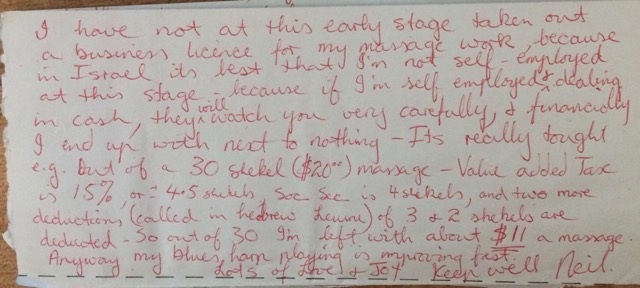 I have not at this early stage taken out
a business licence for my massage work, because
in Israel its best that I'm not self-employed
at this stage - because if I'm self employed & dealing
in cash, they will watch you very carefully, & financially
I end up with next to nothing - Its really tought
e.g. Out of a 30 shekel ($20⁰⁰) massage - Value added Tax
is 15%, or ± 4.5 shekels Soc Sec is 4 shekels, and two more
deductions (called in hebrew Leumi) of 3 & 2 shekels are
deducted - So out of 30 I'm left with about $11 a massage.
Anyway my blues, harp playing is improving fast.
Lots of Love & Joy Keep well Neil.